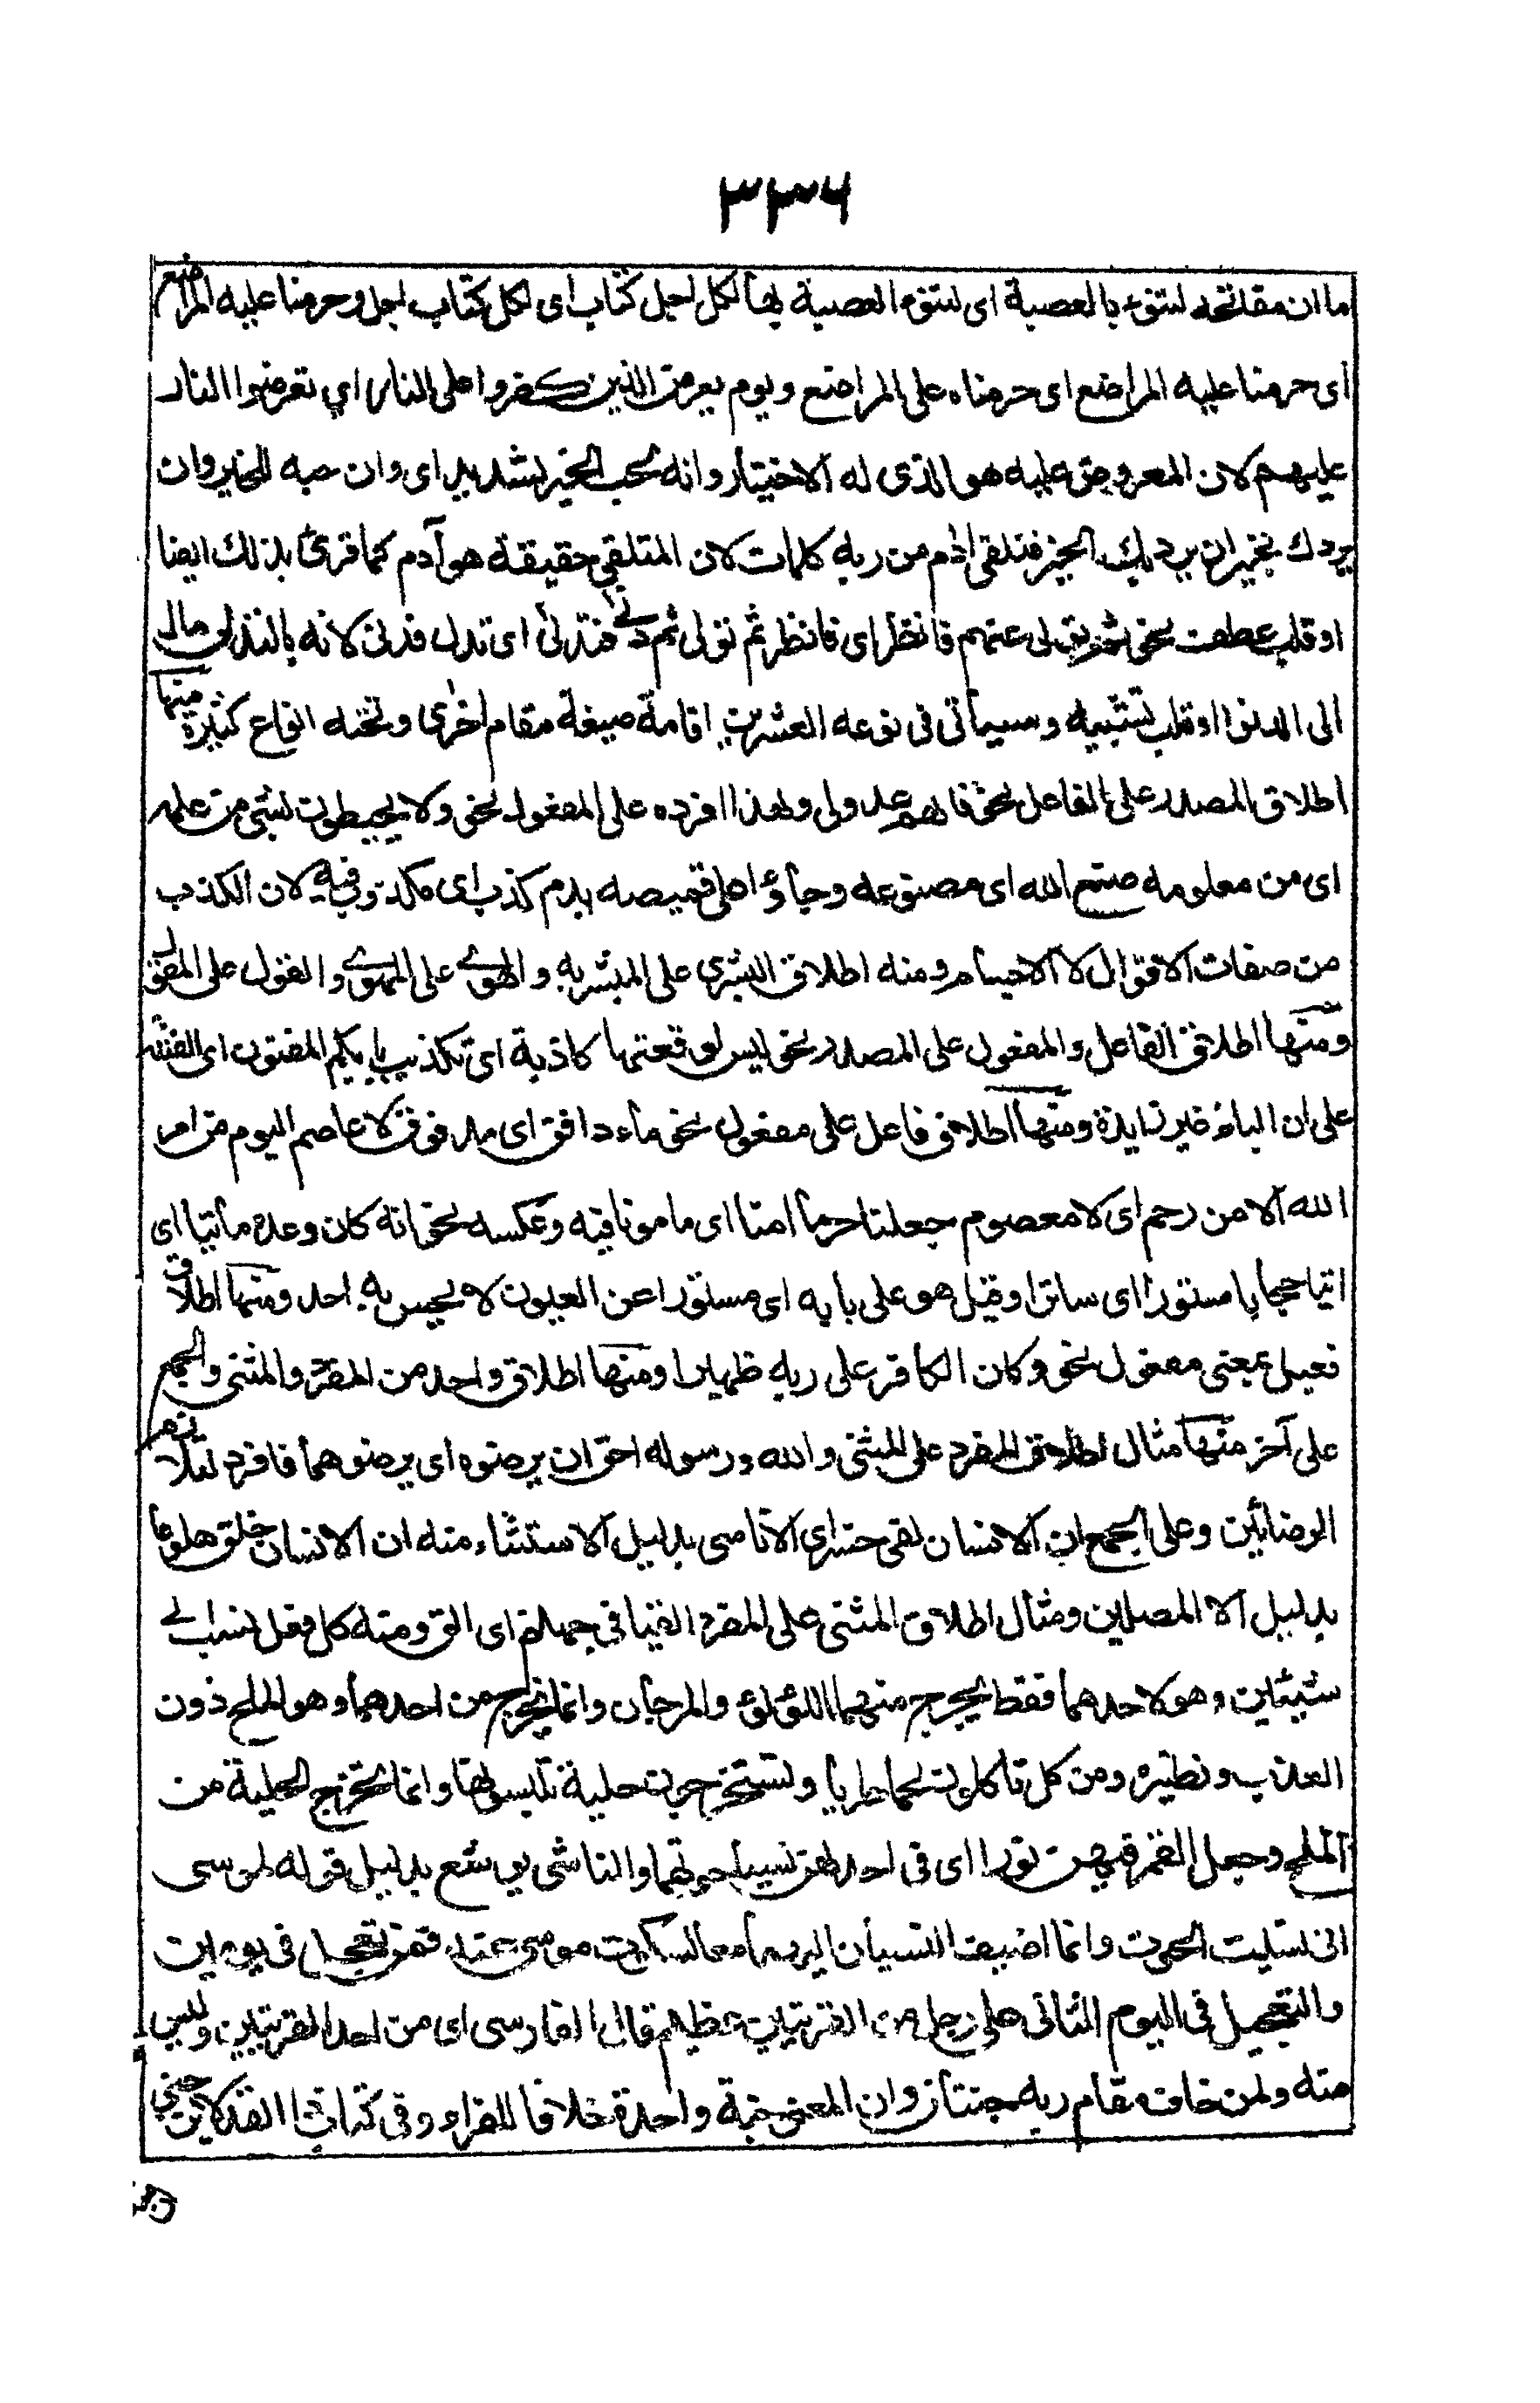 ٣٣٤
ما ان مفاتحه لتنوء بالعصبة اى لتنوء العصبة بها لكل اجل كتاب اى لكل كتاب اجل وحرمنا عليه المراضع
اى حرمنا عليه المراضع اى حرمناه على المراضع ويوم يعرض الذين كفروا على النار اي تعرضوا النار
عليهم لان المعروض عليه هو الذى له الاختيار وانه لحب الخير لشديد اى وان حبه للخير وان
يردك بخير ان يرد بك الخير فتلقى ادم من ربه كلمات لان المتلقى حقيقة هو آدم كما قرئ بذلك ايضا
او قلب عطف نحو ثم تول عنهم فانظر اى فانظر ثم تول ثم دنى فتدلى اى تدلى فدنى لانه بالتدلى مال
الى الدنوا او قلب تشبيه وسيأتى فى نوعه العشرين اقامة صيغة مقام اخرى وتحته انواع كثيرة منها
اطلاق المصدر على الفاعل نحو فانهم عدو لى ولهذا افرده على المفعول نحو ولا يحيطون بشئ من علمه
اى من معلومه صنع الله اى مصنوعه وجاؤا على قميصه بدم كذب اى مكذوب فيه لان الكذب
من صفات الاقوال لا الاجسام ومنه اطلاق البشرى على المبشر به والهوى على المهوى والقول على المقول
ومنها اطلاق الفاعل والمفعول على المصدر نحو ليس لوقعتها كاذبة اى تكذيب بايكم المفتون اى الفتنة
على ان الباء غير زايدة ومنها اطلاق فاعل على مفعول نحو ماء دافق اى مدفوق لا عاصم اليوم من امر
الله الا من رحم اى لا معصوم جعلنا حرما امنا اى مامونا فيه وعكسه نحو انه كان وعده مأتيا اى
اتيا حجابا مستورا اى ساترا وقيل هو على بابه اى مستورا عن العيون لا يحس به احد ومنها اطلاق
فعيل بمعنى مفعول نحو وكان الكافر على ربه ظهيرا ومنها اطلاق واحد من المفرد والمثنى والجمع
على آخر منها مثال اطلاق المفرد على المثنى والله ورسوله احق ان يرضوه اى يرضوهما فافرد لتلازم
الرضائين وعلى الجمع ان الانسان لفى خسر اى الاناسى بدليل الاستثناء منه ان الانسان خلق هلوعا
بدليل الا المصلين ومثال اطلاق المثنى على المفرد القيا فى جهنم اى الق ومنه كل فعل نسب الى
شيئين وهو لاحدهما فقط يخرج منهما اللؤلؤ والمرجان وانما يخرج من احدهما وهو الملح دون
العذب ونظيره ومن كل تاكلون لحما طريا وتستخرجون حلية تلبسونها وانما تخرج الحلية من
الملح وجعل القمر فيهن نورا اى فى احداهن نسيا حوتهما والناسى يوشع بدليل قوله لموسى
انى نسيت الحوت وانما اضيف النسيان اليهما معا لسكوت موسى عنه فمن تعجل فى يومين
والتعجيل فى اليوم الثانى على رجل من القريتين عظيم قال الفارسى اى من احد القريتين وليس
منه ولمن خاف مقام ربه جنتان وان المعنى جنة واحدة خلافا للفراء وفى كتاب ذا القد لابن جنى